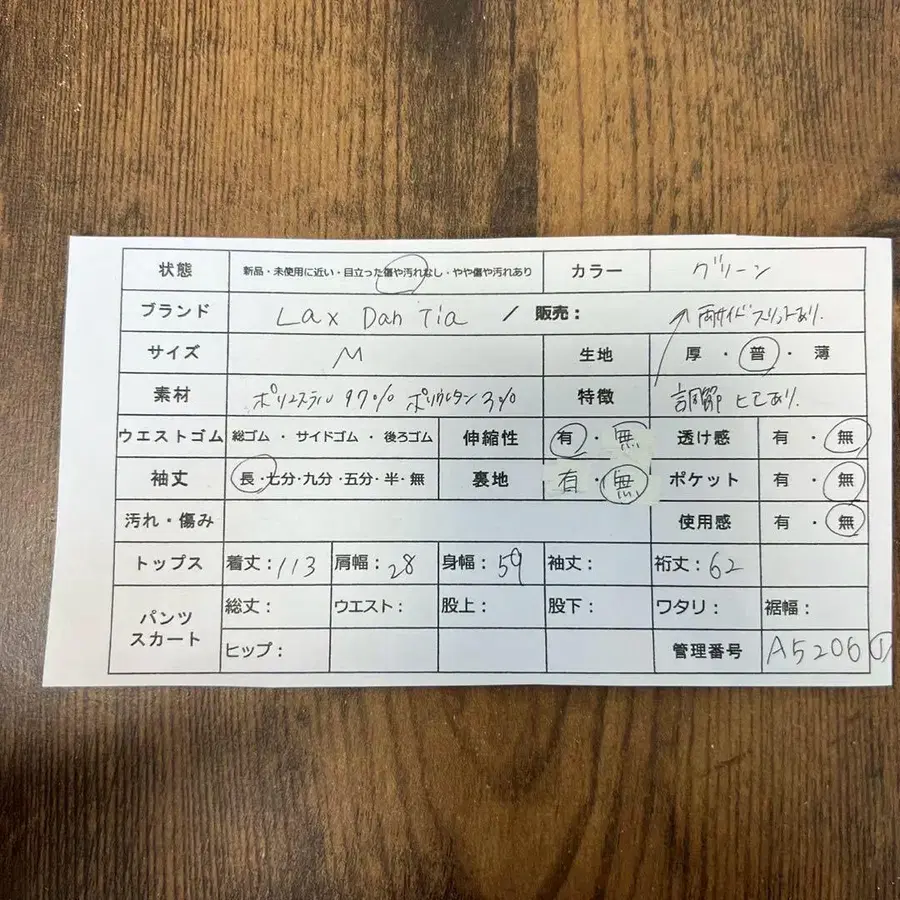 状態 新品・未使用に近い・目立った傷や汚れなし・やや傷や汚れあり カラー グリーン
ブランド Lax Dan Tia / 販売： 両サイドスリットあり.
サイズ M 生地 厚・普・薄
素材 ポリエステル 97% ポリウレタン 3% 特徴 調節ヒモあり.
ウエストゴム 総ゴム・サイドゴム・後ろゴム 伸縮性 有・無 透け感 有・無
袖丈 長・七分・九分・五分・半・無 裏地 有・無 ポケット 有・無
汚れ・傷み 使用感 有・無
トップス 着丈：113 肩幅：28 身幅：59 袖丈： 裄丈：62
パンツ スカート 総丈： ウエスト： 股上： 股下： ワタリ： 裾幅：
ヒップ： 管理番号 A5206①